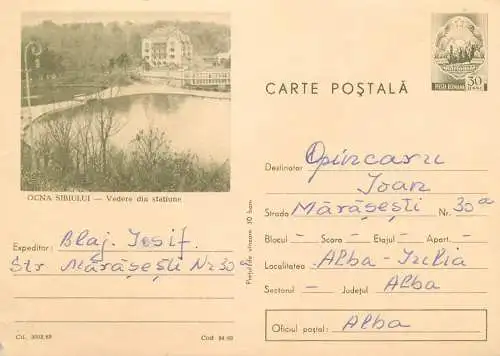 OCNA SIBIULUI — Vedere din stațiune
Expeditor: Blaj Iosif.
Str Mărășești Nr 30
Cd. 3002/69
Cod 84 69
Prețul de vînzare 30 bani
CARTE POȘTALĂ
POSTA ROMANA 30 BANI
Destinatar Opincaru
Ioan
Strada Mărășești Nr. 30a
Blocul — Scara — Etajul — Apart. —
Localitatea Alba-Iulia
Sectorul — Județul Alba
Oficiul poștal: Alba